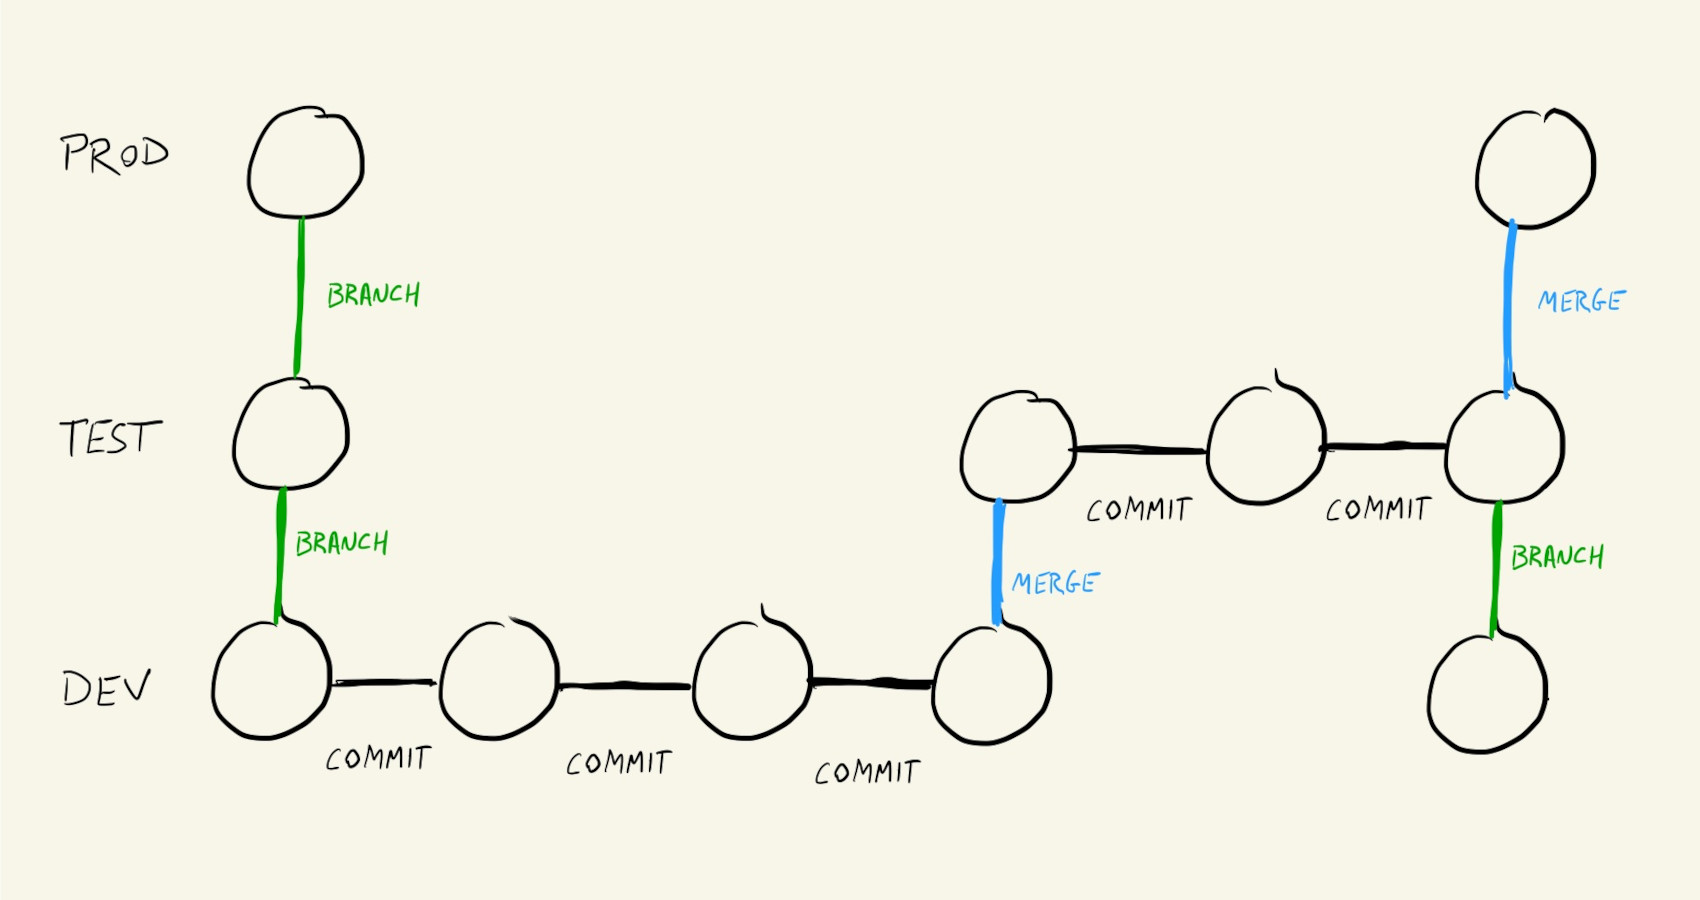 PROD
BRANCH
MERGE
TEST
COMMIT
COMMIT
BRANCH
MERGE
BRANCH
DEV
COMMIT
COMMIT
COMMIT